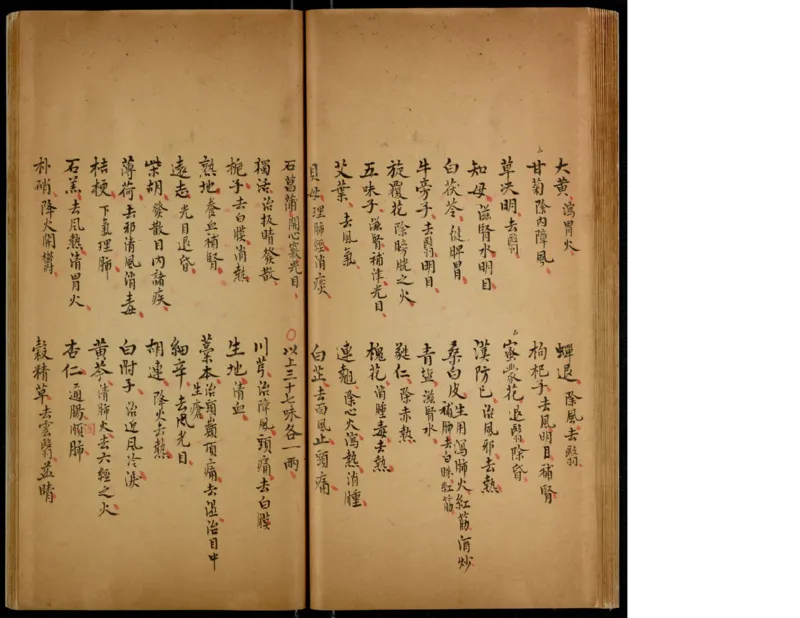 大黃 瀉胃火 蟬退 除風去翳
甘菊 除內障風 枸杞子 去風明目補腎
草决明 去翳 蜜蒙花 退翳除昏
知母 滋腎水明目 漢防已 治風邪去熱
白茯苓 健脾胃 桑白皮 生用瀉肺火紅筋酒炒補肺去白珠紅筋
牛旁子 去翳明目 青盐 滋腎水
旋覆花 除膀胱之火 蕤仁 除赤熱
五味子 滋腎補津光目 槐花 消腫毒去熱
艾葉 去風氣 連翹 除心火瀉熱消腫
貝母 理肺經消痰 白芷 去面風止頭痛
石菖蒲 開心竅光目 〇以上三十七味各一兩
獨活 治扳睛發散 川芎 治障風頭痛去白膜
梔子 去白膜消熱 生地 清血
熟地 養血補腎 藁本 治頭巔頂痛去溫治目中生瘡
遠志 光目退昏 細辛 去風光目
柴胡 發散目內諸疾 胡連 降火去熱
薄荷 去邪清風消毒 白附子 治迎風冷淚
桔梗 下氣理肺 黃芩 清肺火去六經之火
石羔 去風熱清胃火 杏仁 通腸順肺
朴硝 降火開鬱 穀精草 去雲翳益睛